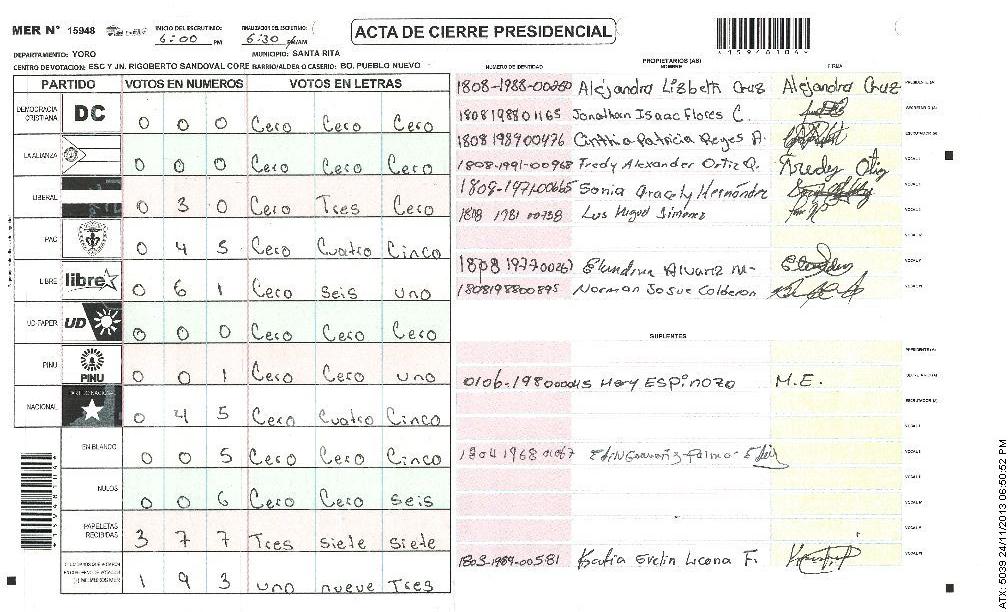 MER N° 15948 INICIO DEL ESCRUTINIO: 6:00 PM FINALIZACION DEL ESCRUTINIO: 6:30
ACTA DE CIERRE PRESIDENCIAL
DEPARTAMENTO: YORO MUNICIPIO: SANTA RITA
CENTRO DE VOTACION: ESC Y JN. RIGOBERTO SANDOVAL CORE BARRIO/ALDEA O CASERIO: BO. PUEBLO NUEVO
PARTIDO VOTOS EN NUMEROS VOTOS EN LETRAS
DEMOCRACIA CRISTIANA DC 0 0 0 Cero Cero Cero
LA ALIANZA 0 0 0 Cero Cero Cero
LIBERAL 0 3 0 Cero Tres Cero
PAC 0 4 5 Cero Cuatro Cinco
LIBRE libre 0 6 1 Cero seis uno
UD-FAPER UD 0 0 0 Cero Cero Cero
PINU PINU 0 0 1 Cero Cero uno
NACIONAL 0 4 5 Cero Cuatro Cinco
EN BLANCO 0 0 5 Cero Cero Cinco
NULOS 0 0 6 Cero Cero seis
PAPELETAS RECIBIDAS 3 7 7 Tres siete siete
1 9 3 uno nueve Tres
PROPIETARIOS (AS)
NUMERO DE IDENTIDAD NOMBRE FIRMA
1808-1988-00280 Alejandra Lizbeth Cruz Alejandra Cruz
1808198801165 Jonathan Isaac Flores C.
1808 198900476 Cinthia Patricia Reyes A.
1808-1991-00968 Fredy Alexander Ortiz Q. Fredy Ortiz
1808-1971-00665 Sonia Aracely Hernández
1808 1981 00738 Luis Miguel Jimenez
1808 1977 00267 Elandina Alvarez M-
1808198800895 Norman Josue Calderon
SUPLENTES
Mery ESPinoza M.E.
1804 1968
1803-1989-00581 Katia Evelin Licona F.
ATX: 5039 24/11/2013 06:50:52 PM